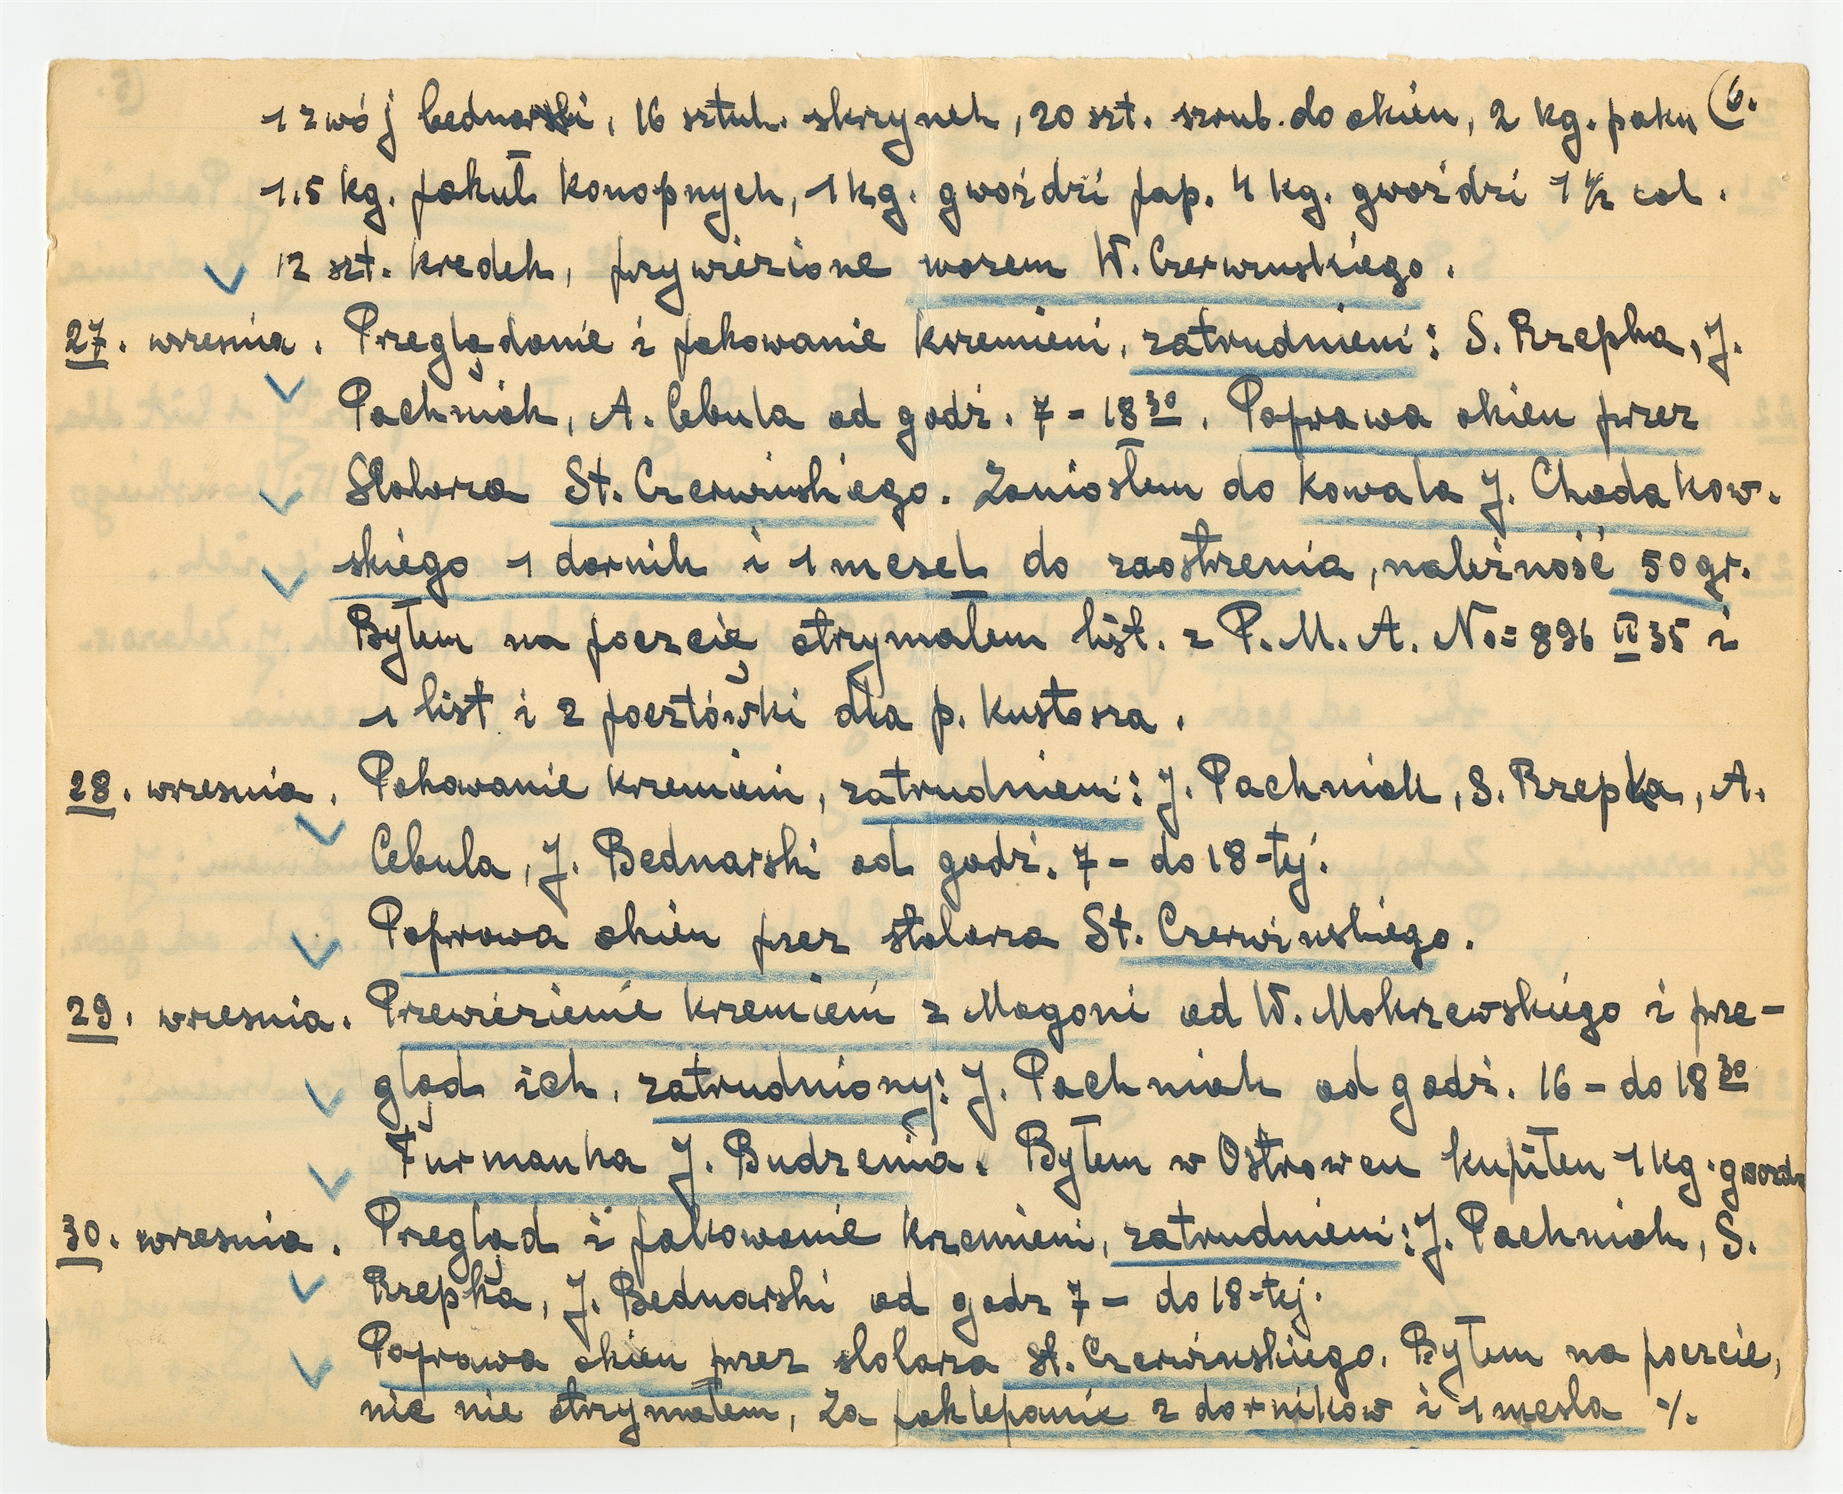 (6.
1 zwój bednarski, 16 sztuk. skrzynek, 20 szt. szrub. do okien, 2 kg. paku
1.5 kg. pakuł konopnych, 1 kg. gwoździ pap. 4 kg. gwoździ 1 1/2 col.
12 szt. kredek, przywiezione wozem W. Czerwinskiego.
27. wrzesnia. Przeglądanie i pakowanie krzemieni, zatrudnieni: S. Rzepka, J.
Pachniak, A. Cebula od godz. 7 - 18 30. Poprawa okien przez
Stolarza St. Czerwinskiego. Zaniosłem do kowala J. Chodakow.
skiego 1 dornik i 1 mesel do zaostrzenia, należność 50 gr.
Byłem na poczcie otrzymałem list. z P. M. A. No= 896 II 35 i
1 list i 2 pocztówki dla p. Kustosza.
28. wrzesnia. Pakowanie krzemieni, zatrudnieni: J. Pachniak, S. Rzepka, A.
Cebula, J. Bednarski od godz. 7 - do 18-tej.
Poprawa okien przez stolarza St. Czerwinskiego.
29. wrzesnia. Przewiezienie krzemieni z Magoni od W. Mokrzewskiego i prze-
gląd ich, zatrudniony: J. Pachniak od godz. 16 - do 18 30
Furmanka J. Budzenia. Byłem w Ostrowcu kupiłem 1 kg. gwozdzi
30. wrzesnia. Przegląd i pakowanie krzemieni, zatrudnieni: J. Pachniak, S.
Rzepka, J. Bednarski od godz 7 - do 18-tej.
Poprawa okien przez stolarza St. Czerwinskiego. Byłem na poczcie,
nic nie otrzymałem, Za poklepanie 2 dorników i 1 mesla ·/.